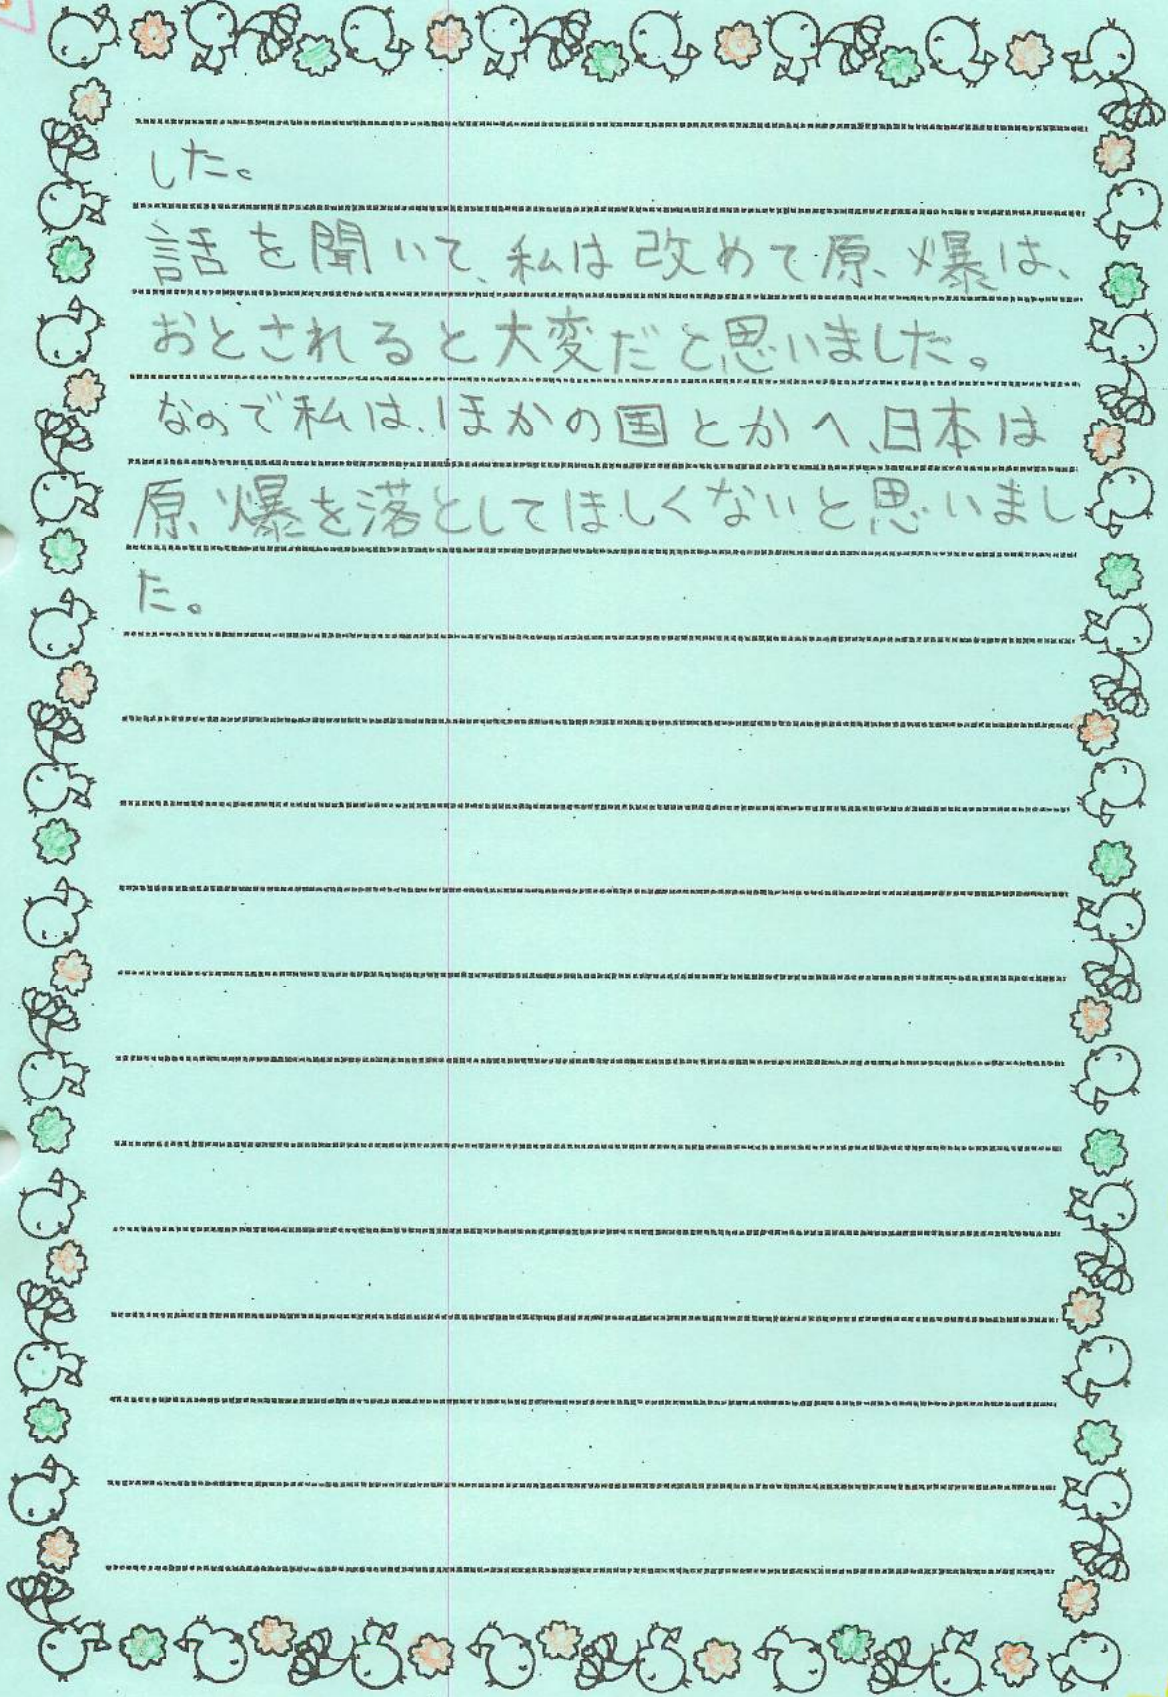 した。
話を聞いて、私は改めて原爆は、
おとされると大変だと思いました。
なので私は、ほかの国とかへ、日本は
原爆を落としてほしくないと思いまし
た。